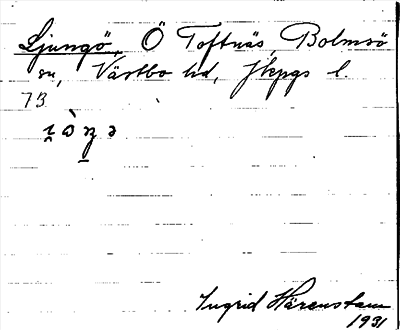 Ljungö, Ö Toftnäs, Bolmsö
sn, Västbo hd, Jkpgs l.
73.
Ingrid Härenstam
1931